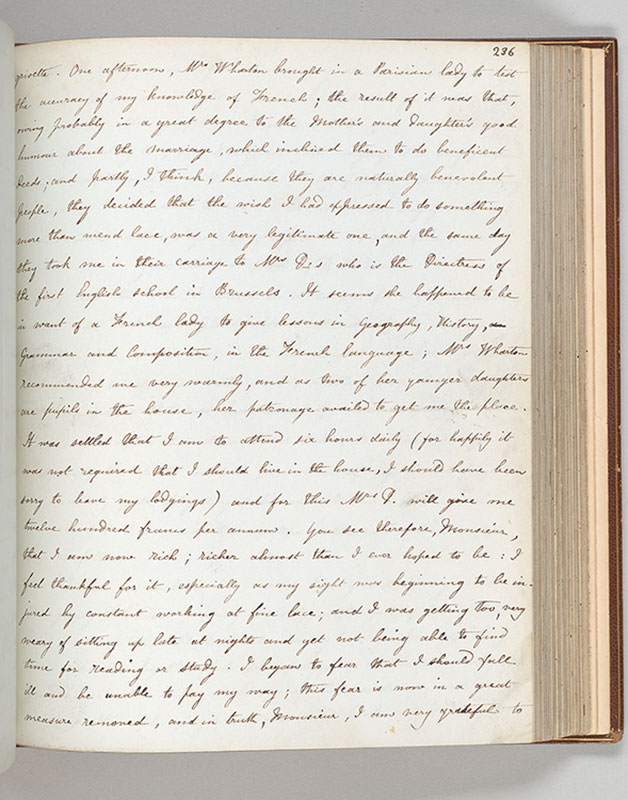 236
grisette. One afternoon, Mrs Wharton brought in a Parisian lady to test
the accuracy of my knowledge of French; the result of it was that,
owing probably in a great degree to the Mother's and daughter's good
humour about the marriage, which inclined them to do beneficent
deeds, and partly, I think, because they are naturally benevolent
people, they decided that the wish I had expressed to do something
more than mend lace, was a very legitimate one, and the same day
they took me in their carriage to Mrs D.'s who is the Directress of
the first English school in Brussels. It seems she happened to be
in want of a French lady to give lessons in Geography, History,
Grammar and Composition, in the French language; Mrs Wharton
recommended me very warmly, and as two of her younger daughters
are pupils in the house, her patronage availed to get me the place.
It was settled that I am to attend six hours daily (for happily it
was not required that I should live in the house, I should have been
sorry to leave my lodgings) and for this Mrs D. will give me
twelve hundred francs per annum. You see therefore, Monsieur,
that I am now rich; richer almost than I ever hoped to be: I
feel thankful for it, especially as my sight was beginning to be in-
jured by constant working at fine lace; and I was getting too, very
weary of sitting up late at nights and yet not being able to find
time for reading or study. I began to fear that I should fall
ill and be unable to pay my way; this fear is now in a great
measure removed, and in truth, Monsieur, I am very grateful to